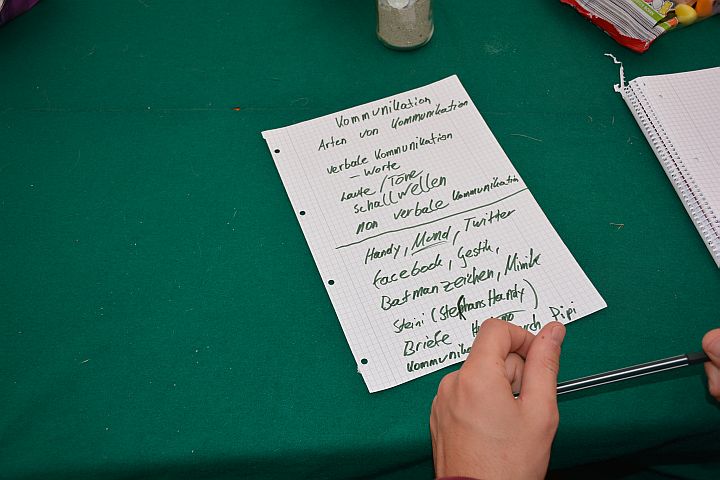 Kommunikation
Arten von Kommunikation
verbale Kommunikation
– Worte
Laute / Töne
Schallwellen
non verbale Kommunikation
Handy, Mund, Twitter
Facebook, Gestik,
Batmanzeichen, Mimik
Steini (Stephans Handy)
Briefe Pipi